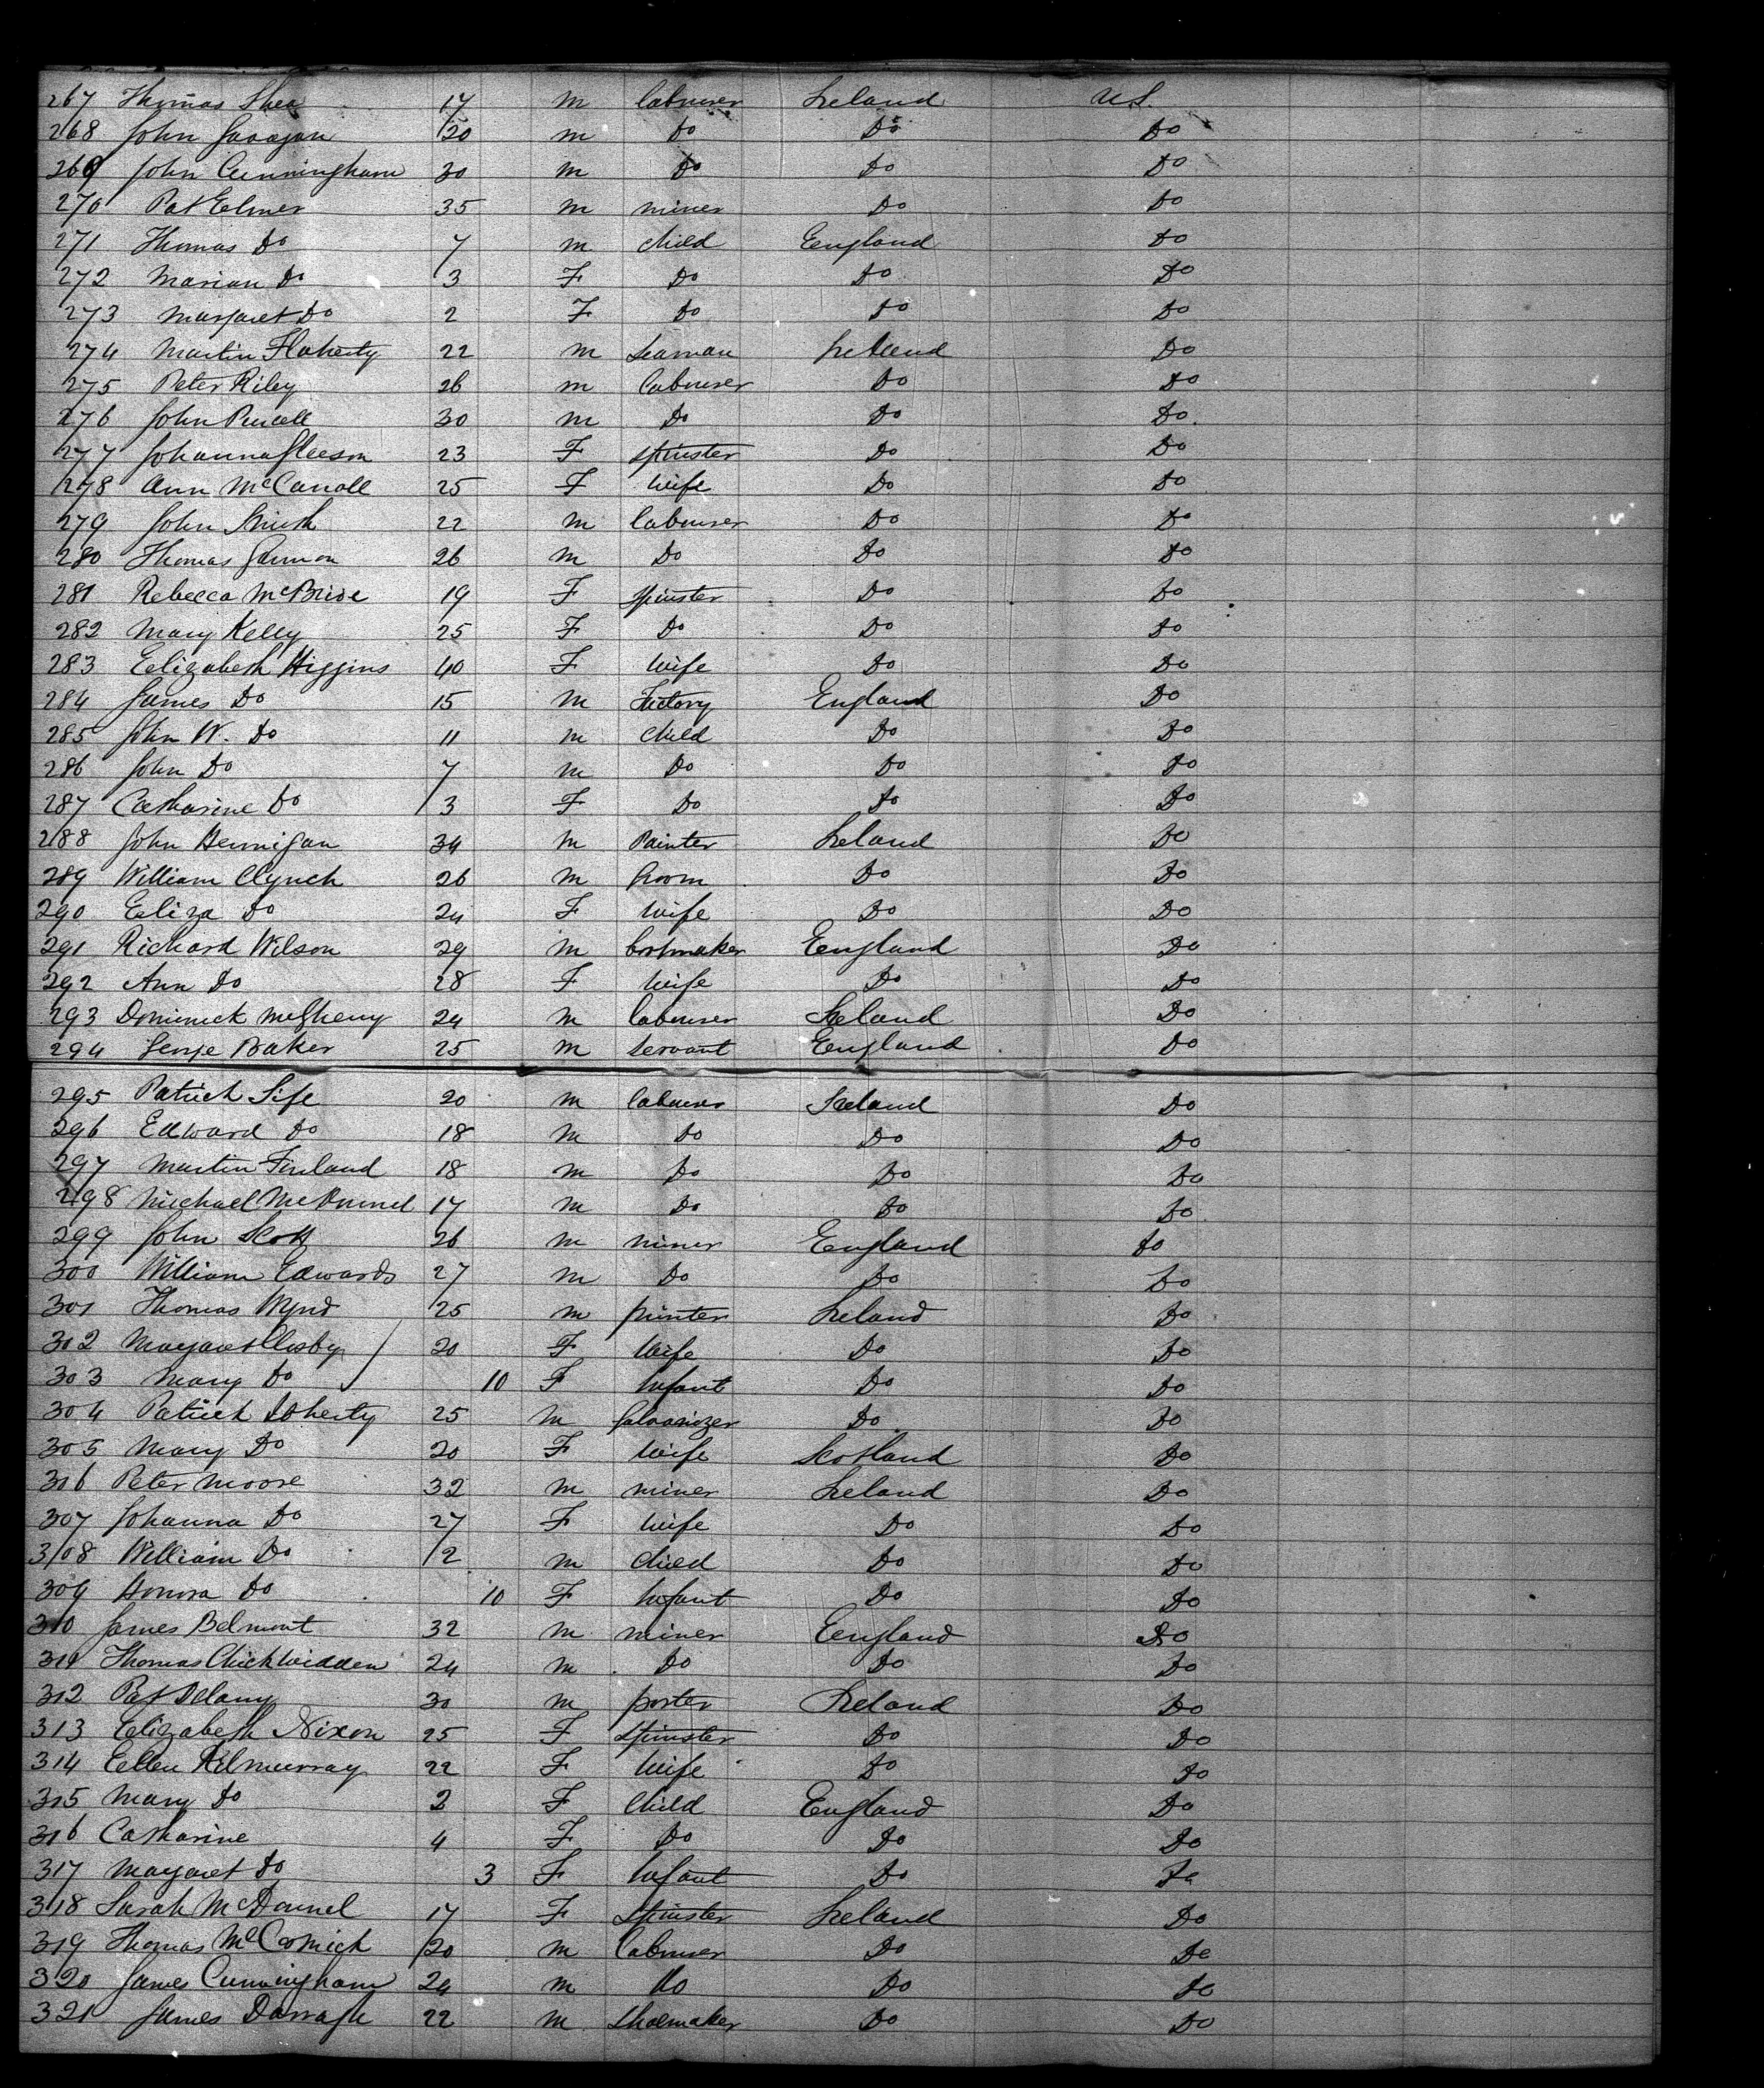 267 Thomas Shea 17 m labourer Ireland U.S.
268 John 20 m Do Do Do
269 John Cunningham 30 m Do Do Do
270 Pat Elmer 35 m miner Do Do
271 Thomas Do 7 m child England Do
272 Marian Do 3 F Do Do Do
273 Margaret Do 2 F Do Do Do
274 Martin Flaherty 22 m seaman Ireland Do
275 Peter Riley 26 m labourer Do Do
276 John Purcell 30 m Do Do Do
277 Johanna Gleeson 23 F spinster Do Do
278 Ann McCarroll 25 F wife Do Do
279 John Smith 22 m labourer Do Do
280 Thomas Gannon 26 m Do Do Do
281 Rebecca McBride 19 F spinster Do Do
282 Mary Kelly 25 F Do Do Do
283 Elizabeth Higgins 40 F wife Do Do
284 James Do 15 m Factory England Do
285 John W. Do 11 m child Do Do
286 John Do 7 m Do Do Do
287 Catharine Do 3 F Do Do Do
288 John Hennigan 34 m Painter Ireland Do
289 William Clynch 26 m Groom Do Do
290 Eliza Do 24 F wife Do Do
291 Richard Wilson 29 m bootmaker England Do
292 Ann Do 28 F wife Do Do
293 Dominick McGheny 24 m labourer Ireland Do
294 George Baker 25 m servant England Do
295 Patrick 20 m labourer Ireland Do
296 Edward Do 18 m Do Do Do
297 Martin Finland 18 m Do Do Do
298 Michael 17 m Do Do Do
299 John Scott 26 m miner England Do
300 William Edwards 27 m Do Do Do
301 Thomas Wynd 25 m printer Ireland Do
302 Margaret Closby 20 F wife Do Do
303 Mary Do 10 F Infant Do Do
304 Patrick Doherty 25 m galvanizer Do Do
305 Mary Do 20 F wife Scotland Do
306 Peter Moore 32 m miner Ireland Do
307 Johanna Do 27 F wife Do Do
308 William Do 2 m child Do Do
309 Honora Do 10 F Infant Do Do
310 James Belmont 32 m miner England Do
311 Thomas Chickwidden 24 m Do Do Do
312 Pat Delany 30 m porter Ireland Do
313 Elizabeth Nixon 25 F spinster Do Do
314 Ellen Kilmurray 22 F wife Do Do
315 Mary Do 2 F child England Do
316 Catharine 4 F Do Do Do
317 Margaret Do 3 F Infant Do Do
318 Sarah McDonnel 17 F spinster Ireland Do
319 Thomas McComick 20 m labourer Do Do
320 James Cunningham 24 m Do Do Do
321 James Darragh 22 m shoemaker Do Do